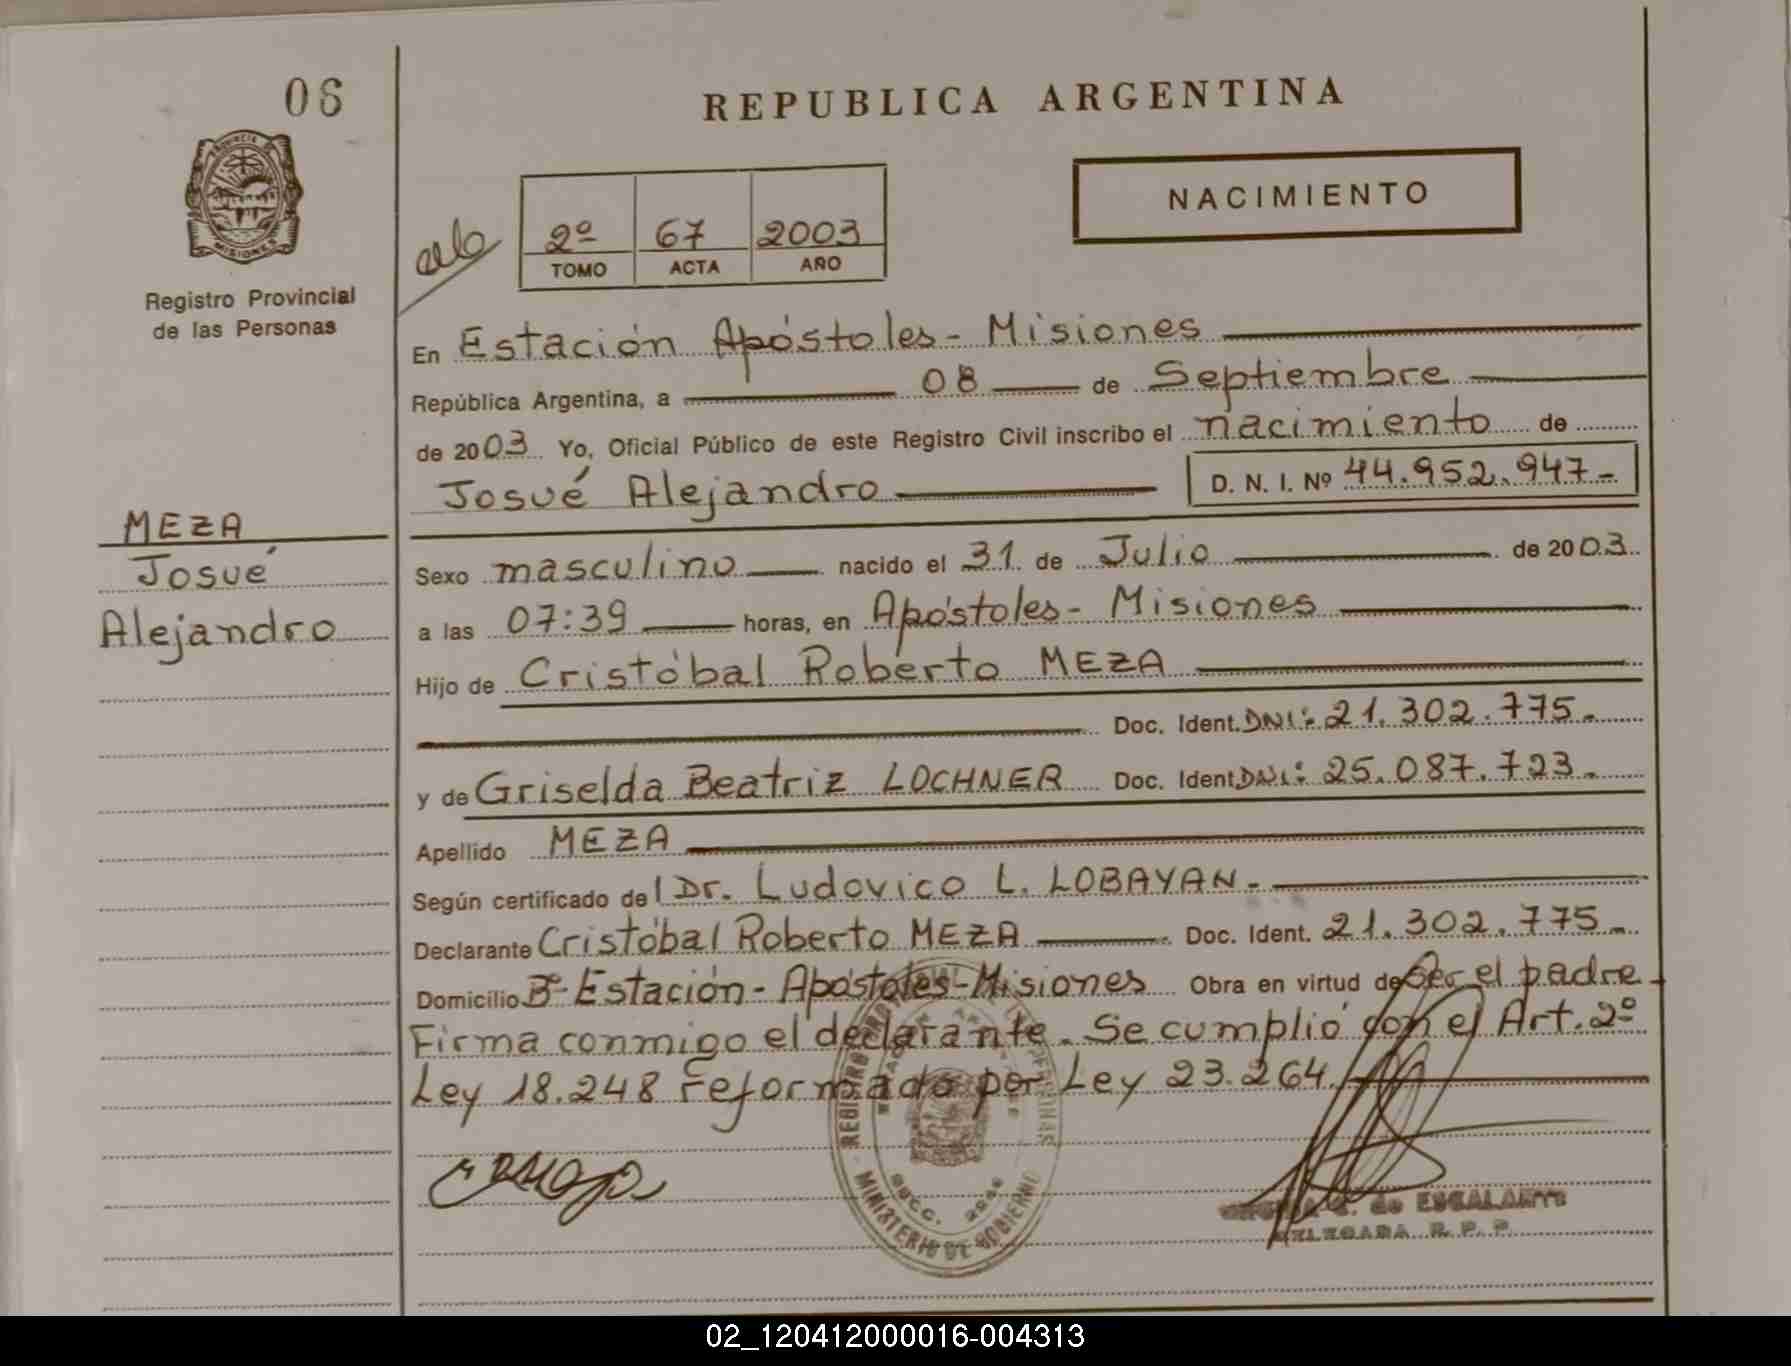 06
REPUBLICA ARGENTINA
PROVINCIA DE
MISIONES
Registro Provincial
de las Personas
NACIMIENTO
2º 67 2003
TOMO ACTA AÑO
En Estación Apóstoles - Misiones
República Argentina, a 08 de Septiembre
de 2003 Yo, Oficial Público de este Registro Civil inscribo el nacimiento de
Josué Alejandro D. N. I. Nº 44.952.947-
MEZA
Josué
Alejandro
Sexo masculino nacido el 31 de Julio de 2003
a las 07:39 horas, en Apóstoles - Misiones
Hijo de Cristóbal Roberto MEZA
Doc. Ident. DNI: 21.302.775.
y de Griselda Beatriz LOCHNER Doc. Ident DNI: 25.087.723.
Apellido MEZA
Según certificado del Dr. Ludovico L. LOBAYAN.
Declarante Cristóbal Roberto MEZA Doc. Ident. 21.302.775.
Domicilio Bº Estación - Apóstoles - Misiones Obra en virtud de Ser el padre
Firma conmigo el declarante. Se cumplió con el Art. 2º
Ley 18.248 reformado por Ley 23.264.
MINISTERIO DE GOBIERNO
de ESCALANTE
DELEGADA R. P. P.
02_120412000016-004313